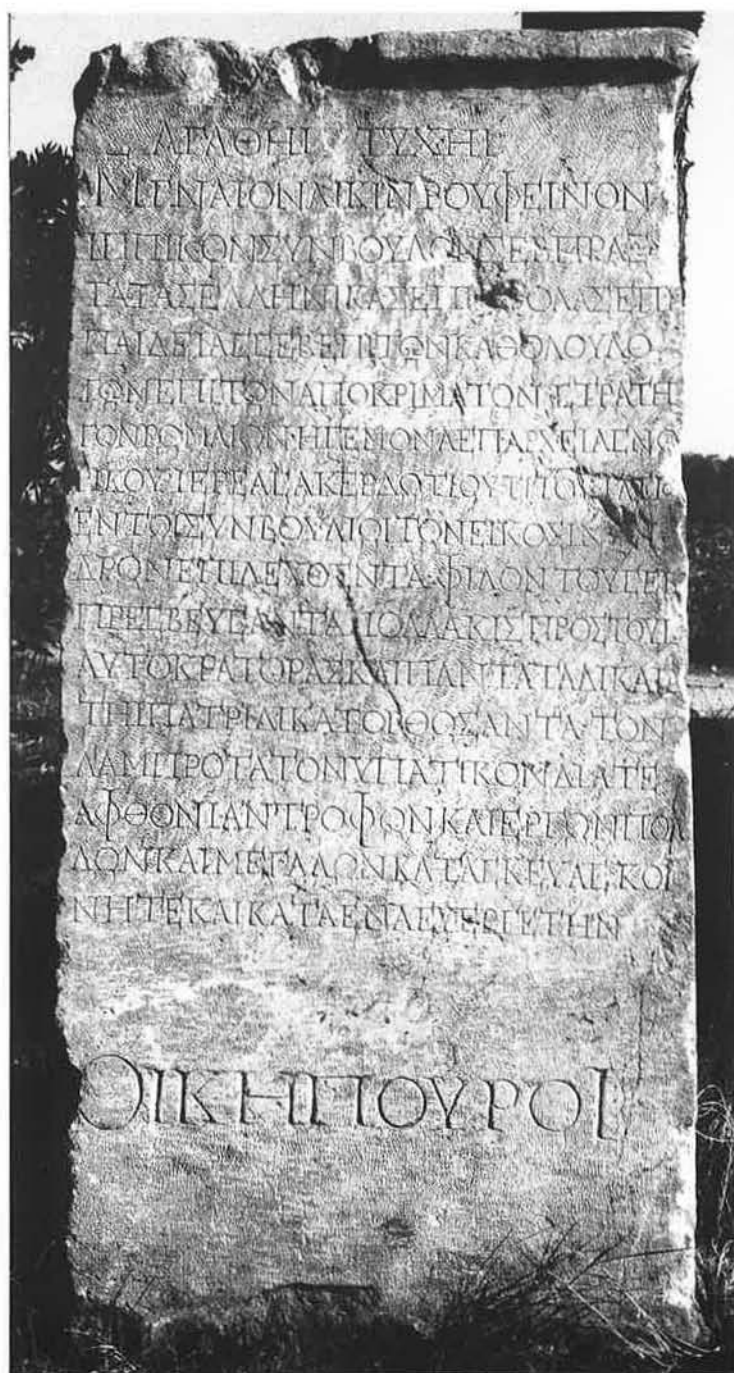 ΑΓΑΘΗΙ ΤΥΧΗΙ
ΛΙΚΙΝ ΡΟΥΦΕΙΝΟΝ
ΙΠΠΙΚΟΝ ΣΥΝΒΟΥΛΟΝ ΣΕΒ ΠΡΑΞ
ΤΑ ΤΑΣ ΕΛΛΗΝΙΚΑΣ ΕΠ ΟΛΑΣ ΕΠΙ
ΠΑΙΔΕΙΑΣ ΣΕΒ ΕΠΙ ΤΩΝ ΚΑΘΟΛΟΥ ΛΟ
ΓΩΝ ΕΠΙ ΤΩΝ ΑΠΟΚΡΙΜΑΤΩΝ ΣΤΡΑΤΗ
ΓΟΝ ΡΩΜΑΙΩΝ ΗΓΕΜΟΝΑ ΕΠΑΡΧΕΙΑΣ ΝΩ
ΡΙΚΟΥ ΙΕΡΕΑ ΣΑΚΕΡΔΩΤΙΟΥ ΤΙΤΟΥ
ΕΝ ΤΩΙ ΣΥΝΒΟΥΛΙΩΙ ΤΩΝ ΕΙΚΟΣΙΝ ΑΝ
ΔΡΩΝ ΕΠΙΛΕΧΘΕΝΤΑ ΦΙΛΟΝ ΤΟΥ ΣΕΒ
ΠΡΕΣΒΕΥΣΑΝΤΑ ΠΟΛΛΑΚΙΣ ΠΡΟΣ ΤΟΥΣ
ΑΥΤΟΚΡΑΤΟΡΑΣ ΚΑΙ ΠΑΝΤΑ ΤΑ ΔΙΚΑΙΑ
ΤΗΙ ΠΑΤΡΙΔΙ ΚΑΤΟΡΘΩΣΑΝΤΑ ΤΟΝ
ΛΑΜΠΡΟΤΑΤΟΝ ΥΠΑΤΙΚΟΝ ΔΙΑ ΤΕ
ΑΦΘΟΝΙΑΝ ΤΡΟΦΩΝ ΚΑΙ ΕΡΓΩΝ ΠΟΛ
ΛΩΝ ΚΑΙ ΜΕΓΑΛΩΝ ΚΑΤΑΣΚΕΥΑΣ ΚΟΙ
ΝΗ ΤΕ ΚΑΙ ΚΑΤΑ ΕΝΑ ΕΥΕΡΓΕΤΗΝ
ΟΙ ΚΗΠΟΥΡΟΙ